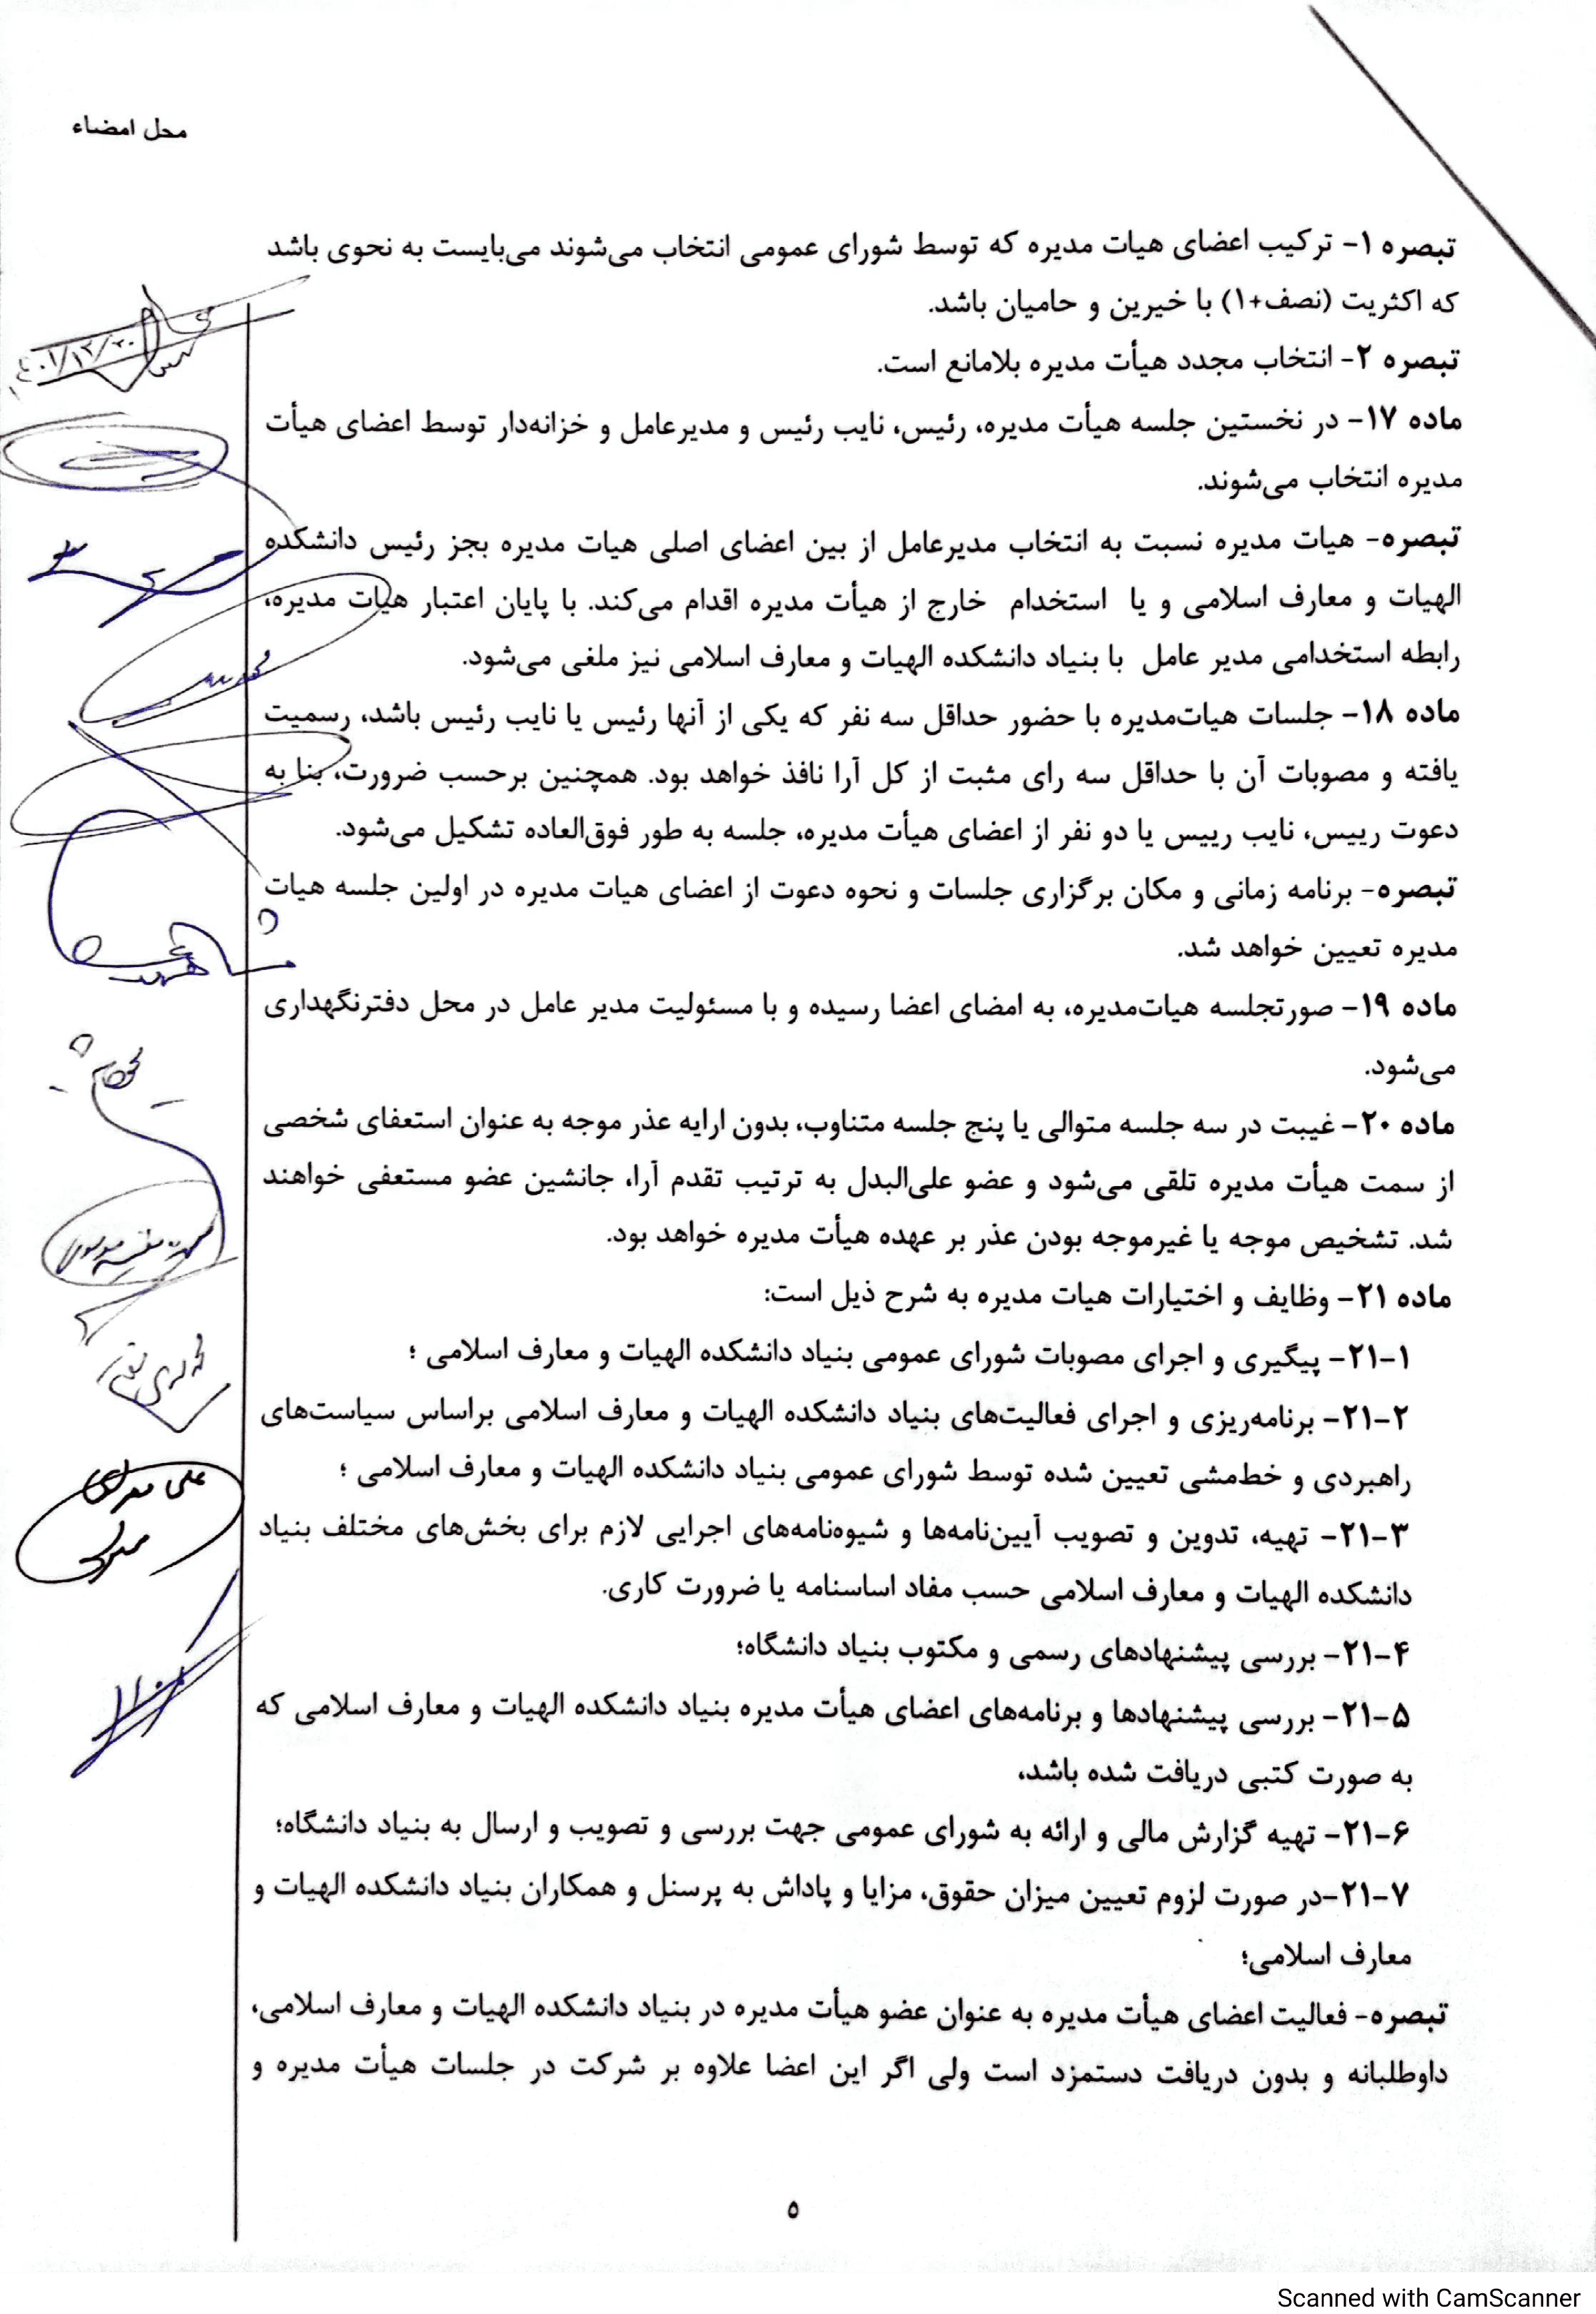 محل امضاء
تبصره ۱- ترکیب اعضای هیات مدیره که توسط شورای عمومی انتخاب می‌شوند می‌بایست به نحوی باشد
که اکثریت (نصف+۱) با خیرین و حامیان باشد.
تبصره ۲- انتخاب مجدد هیأت مدیره بلامانع است.
ماده ۱۷- در نخستین جلسه هیأت مدیره، رئیس، نایب رئیس و مدیرعامل و خزانه‌دار توسط اعضای هیأت
مدیره انتخاب می‌شوند.
تبصره- هیات مدیره نسبت به انتخاب مدیرعامل از بین اعضای اصلی هیات مدیره بجز رئیس دانشکده
الهیات و معارف اسلامی و یا استخدام خارج از هیأت مدیره اقدام می‌کند. با پایان اعتبار هیات مدیره،
رابطه استخدامی مدیر عامل با بنیاد دانشکده الهیات و معارف اسلامی نیز ملغی می‌شود.
ماده ۱۸- جلسات هیات‌مدیره با حضور حداقل سه نفر که یکی از آنها رئیس یا نایب رئیس باشد، رسمیت
یافته و مصوبات آن با حداقل سه رای مثبت از کل آرا نافذ خواهد بود. همچنین برحسب ضرورت، بنا به
دعوت رییس، نایب رییس یا دو نفر از اعضای هیأت مدیره، جلسه به طور فوق‌العاده تشکیل می‌شود.
تبصره- برنامه زمانی و مکان برگزاری جلسات و نحوه دعوت از اعضای هیات مدیره در اولین جلسه هیات
مدیره تعیین خواهد شد.
ماده ۱۹- صورتجلسه هیات‌مدیره، به امضای اعضا رسیده و با مسئولیت مدیر عامل در محل دفترنگهداری
می‌شود.
ماده ۲۰- غیبت در سه جلسه متوالی یا پنج جلسه متناوب، بدون ارایه عذر موجه به عنوان استعفای شخصی
از سمت هیأت مدیره تلقی می‌شود و عضو علی‌البدل به ترتیب تقدم آرا، جانشین عضو مستعفی خواهند
شد. تشخیص موجه یا غیرموجه بودن عذر بر عهده هیأت مدیره خواهد بود.
ماده ۲۱- وظایف و اختیارات هیات مدیره به شرح ذیل است:
۲۱-۱- پیگیری و اجرای مصوبات شورای عمومی بنیاد دانشکده الهیات و معارف اسلامی ؛
۲۱-۲- برنامه‌ریزی و اجرای فعالیت‌های بنیاد دانشکده الهیات و معارف اسلامی براساس سیاست‌های
راهبردی و خط‌مشی تعیین شده توسط شورای عمومی بنیاد دانشکده الهیات و معارف اسلامی ؛
۲۱-۳- تهیه، تدوین و تصویب آیین‌نامه‌ها و شیوه‌نامه‌های اجرایی لازم برای بخش‌های مختلف بنیاد
دانشکده الهیات و معارف اسلامی حسب مفاد اساسنامه یا ضرورت کاری.
۲۱-۴- بررسی پیشنهادهای رسمی و مکتوب بنیاد دانشگاه؛
۲۱-۵- بررسی پیشنهادها و برنامه‌های اعضای هیأت مدیره بنیاد دانشکده الهیات و معارف اسلامی که
به صورت کتبی دریافت شده باشد،
۲۱-۶- تهیه گزارش مالی و ارائه به شورای عمومی جهت بررسی و تصویب و ارسال به بنیاد دانشگاه؛
۲۱-۷-در صورت لزوم تعیین میزان حقوق، مزایا و پاداش به پرسنل و همکاران بنیاد دانشکده الهیات و
معارف اسلامی؛
تبصره- فعالیت اعضای هیأت مدیره به عنوان عضو هیأت مدیره در بنیاد دانشکده الهیات و معارف اسلامی،
داوطلبانه و بدون دریافت دستمزد است ولی اگر این اعضا علاوه بر شرکت در جلسات هیأت مدیره و
۵
Scanned with CamScanner